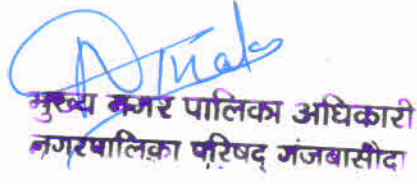 मुख्य नगर पालिका अधिकारी
नगरपालिका परिषद् गंजबासौदा